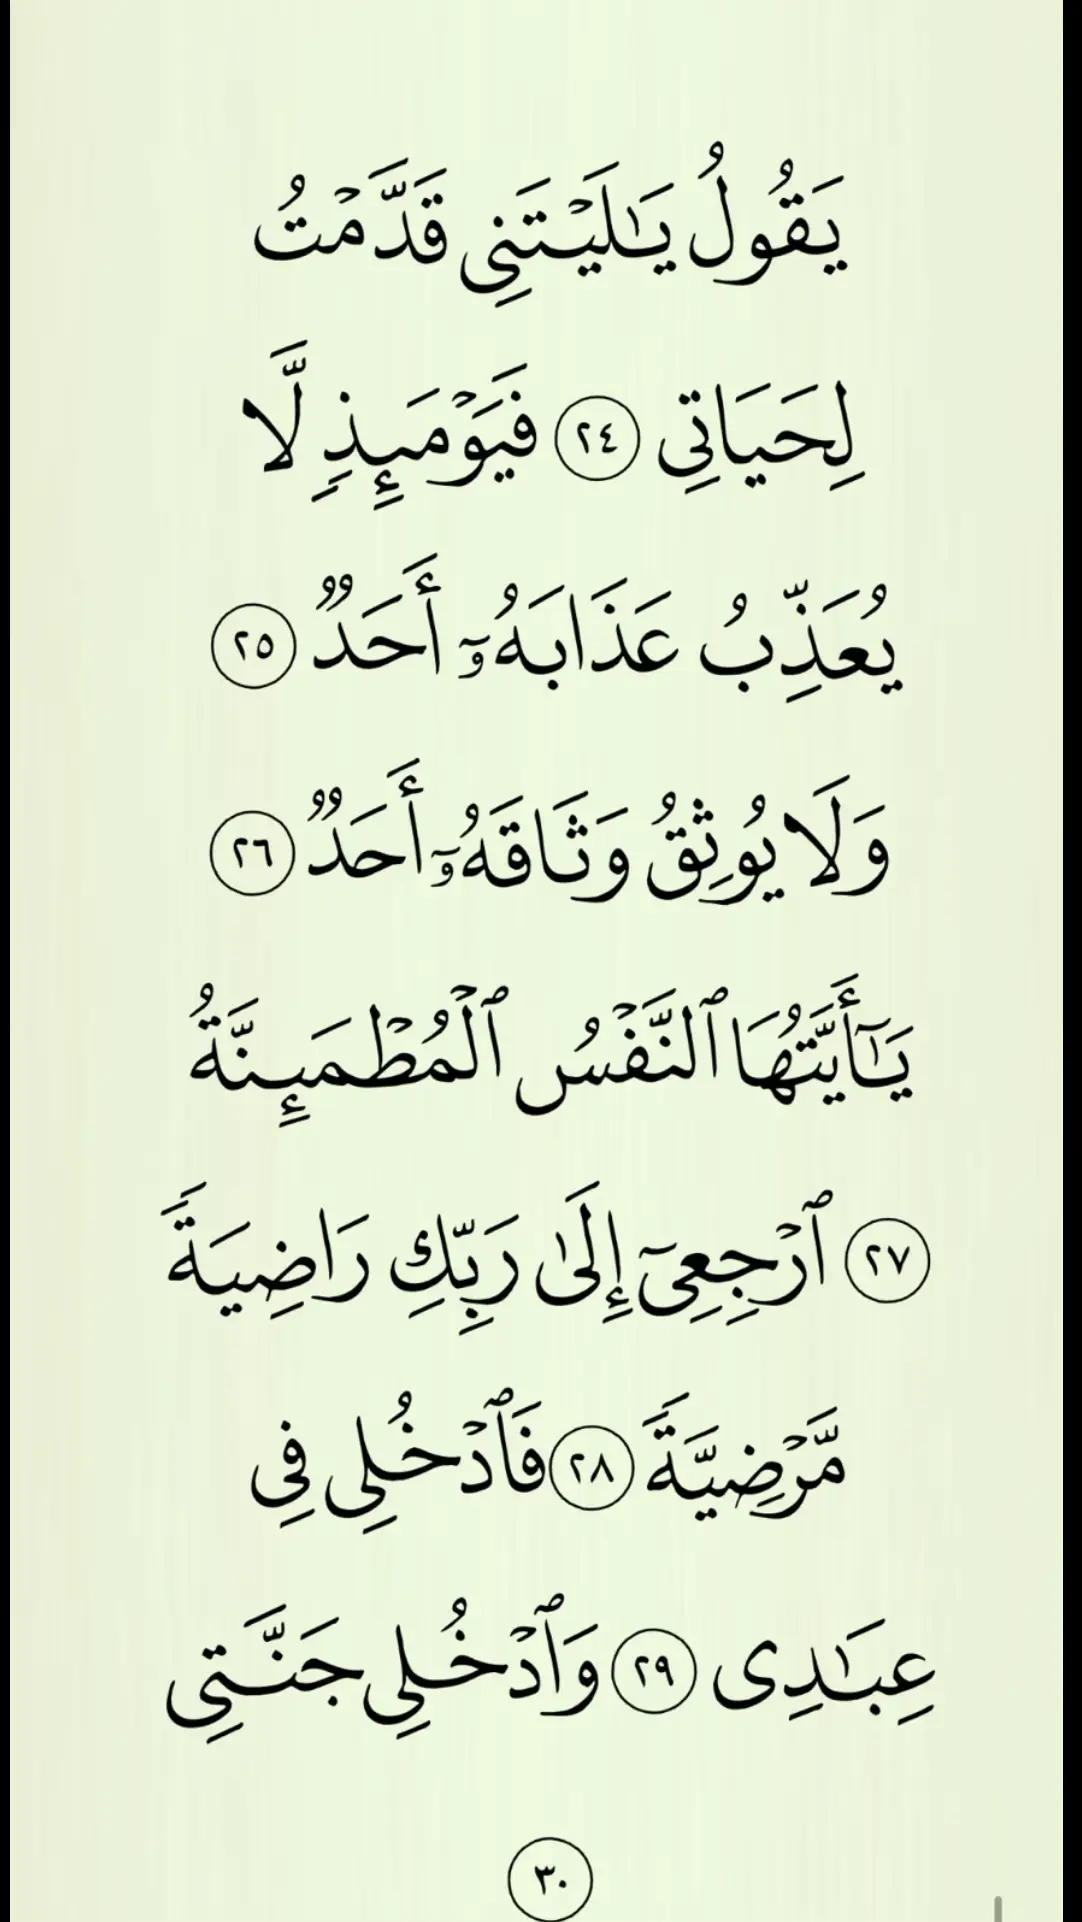 يَقُولُ يَـٰلَيۡتَنِى قَدَّمۡتُ
لِحَيَاتِى ٢٤ فَيَوۡمَئِذٍ لَّا
يُعَذِّبُ عَذَابَهُۥٓ أَحَدٌ ٢٥
وَلَا يُوثِقُ وَثَاقَهُۥٓ أَحَدٌ ٢٦
يَـٰٓأَيَّتُهَا ٱلنَّفۡسُ ٱلۡمُطۡمَئِنَّةُ
٢٧ ٱرۡجِعِىٓ إِلَىٰ رَبِّكِ رَاضِيَةً
مَّرۡضِيَّةً ٢٨ فَٱدۡخُلِى فِى
عِبَـٰدِى ٢٩ وَٱدۡخُلِى جَنَّتِى
٣٠